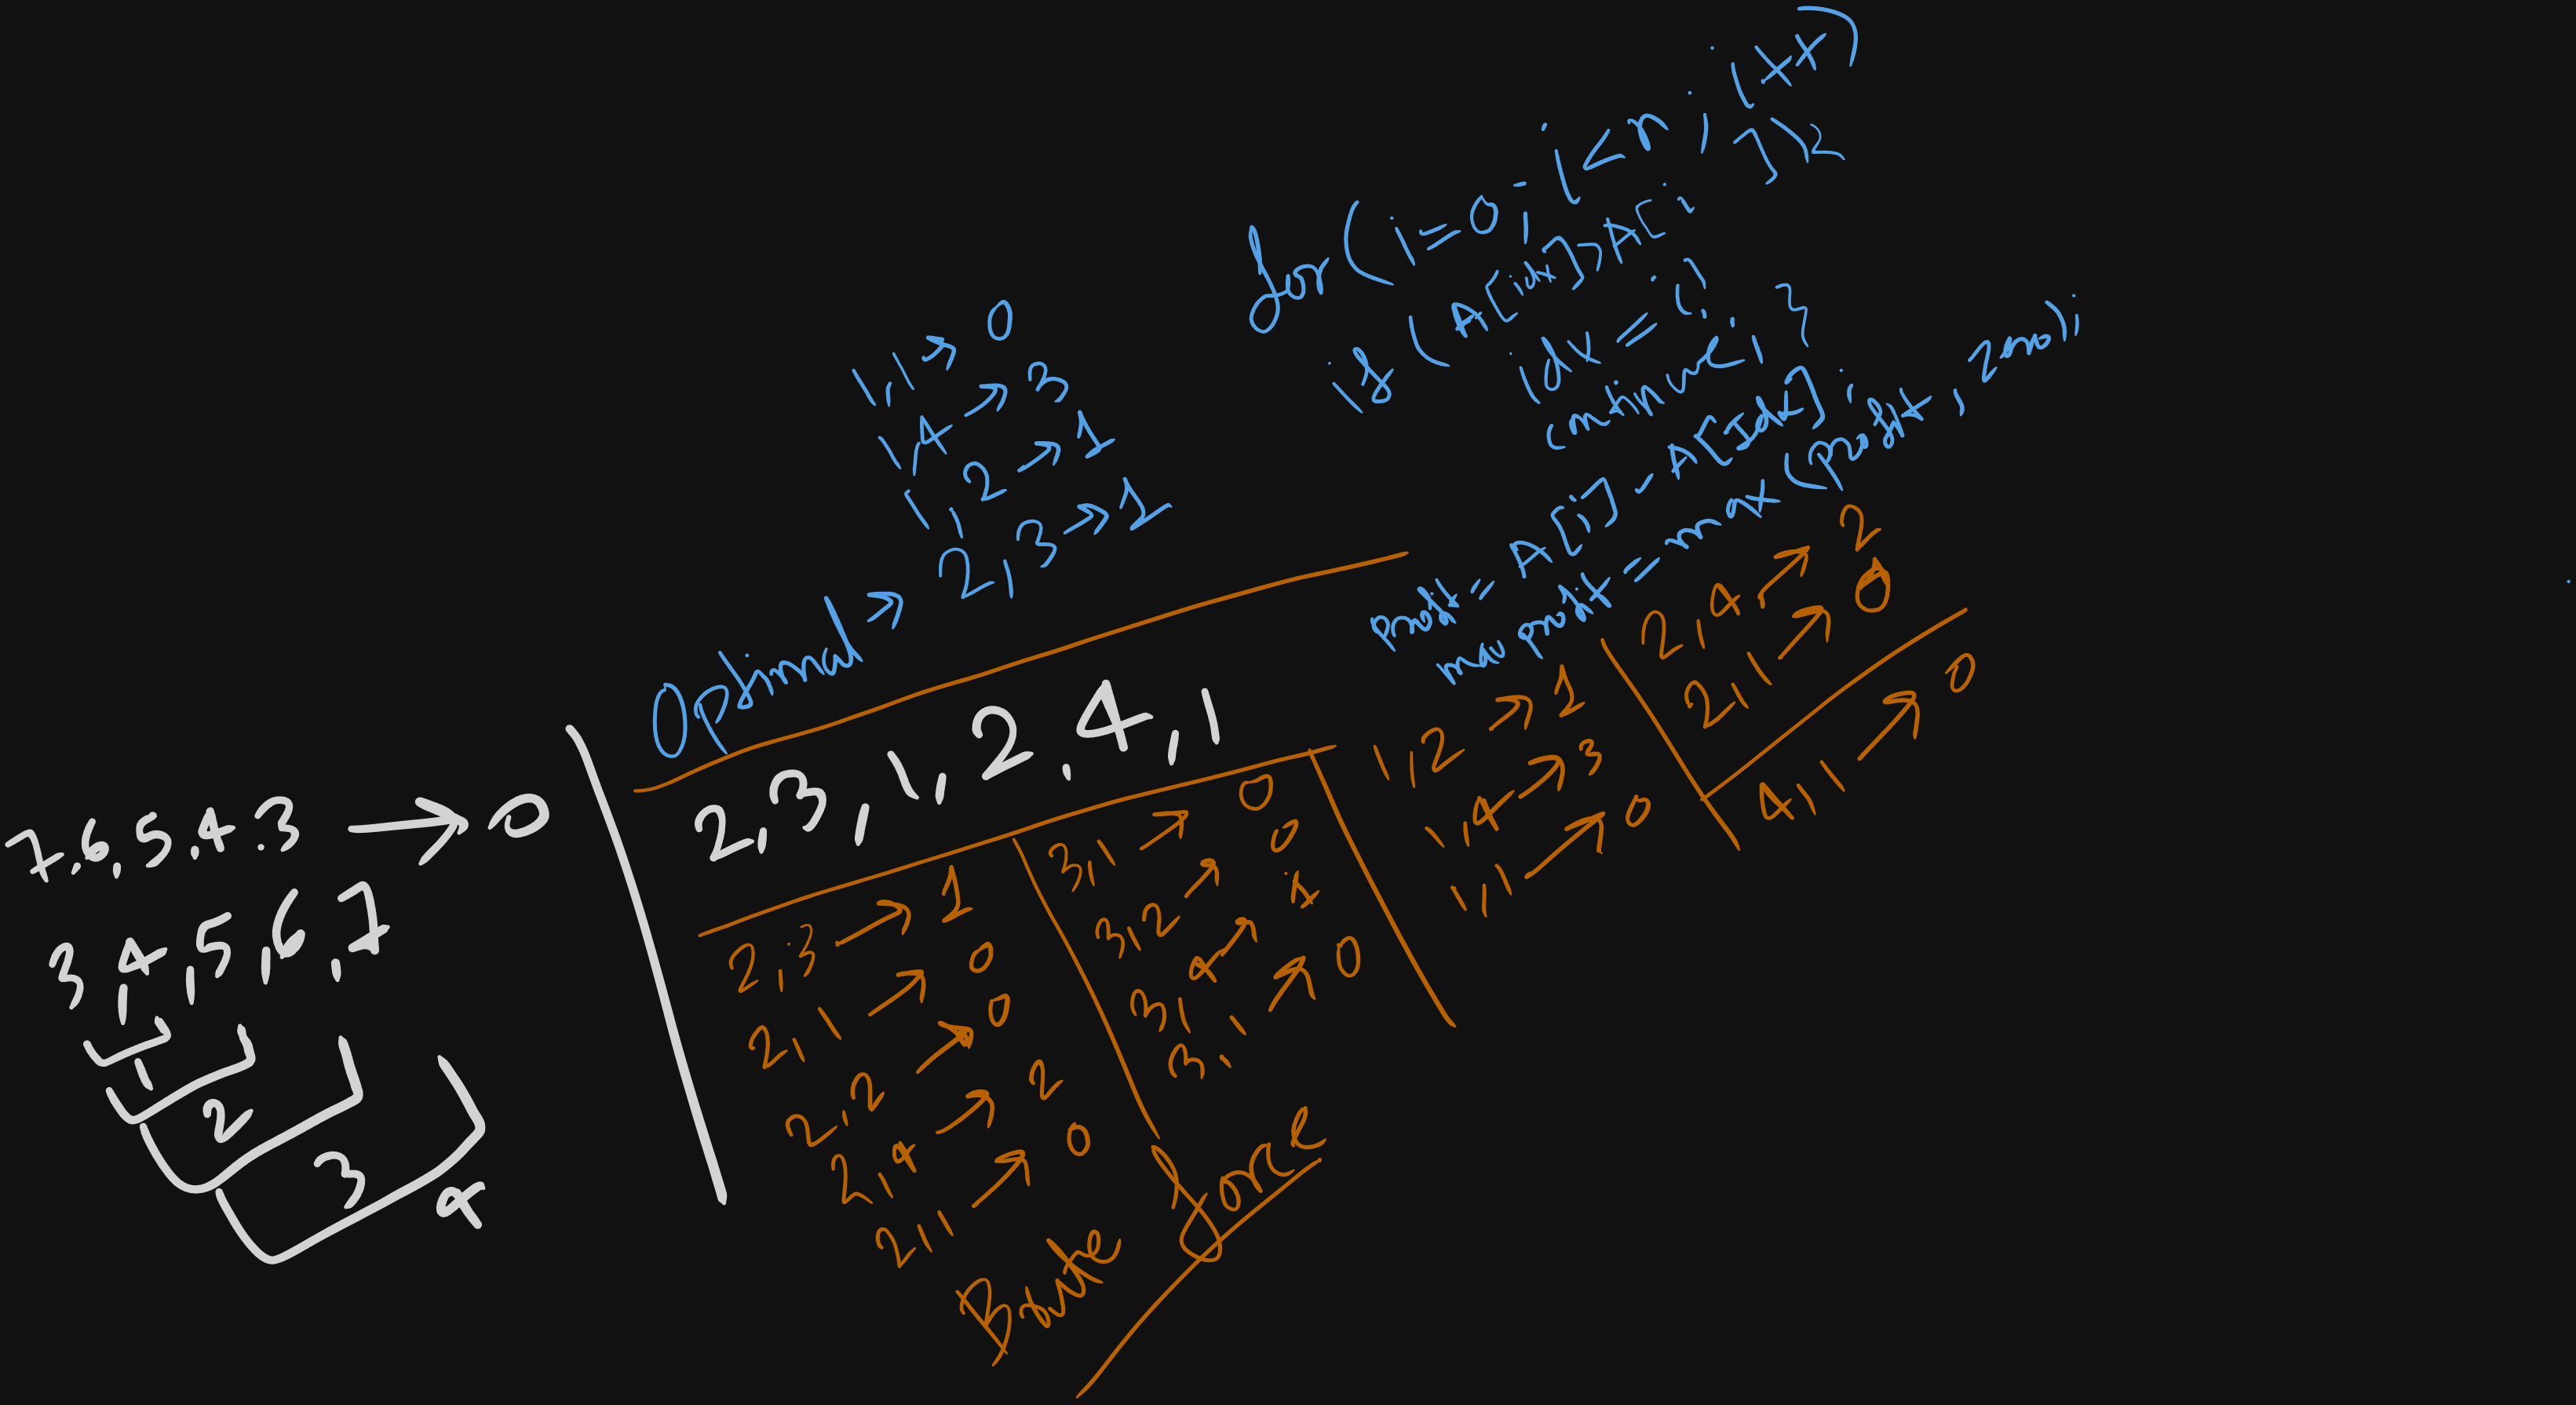 7,6,5,4.3 → 0
3,4,5,6,7
1
2
3
4
Optimal → 2,3 → 1
1,2 → 1
1,4 → 3
1,1 → 0
for(i=0; i<n; i++)
if (A[idx]>A[i]){
idx = i;
continue; }
Profit = A[i] - A[Idx];
max profit = max (profit, zero);
2,3,1,2,4,1
2,3 → 1
2,1 → 0
2,2 → 0
2,4 → 2
2,1 → 0
3,1 → 0
3,2 → 0
3,4 → 1
3,1 → 0
1,2 → 1
1,4 → 3
1,1 → 0
2,4 → 2
2,1 → 0
4,1 → 0
Brute force